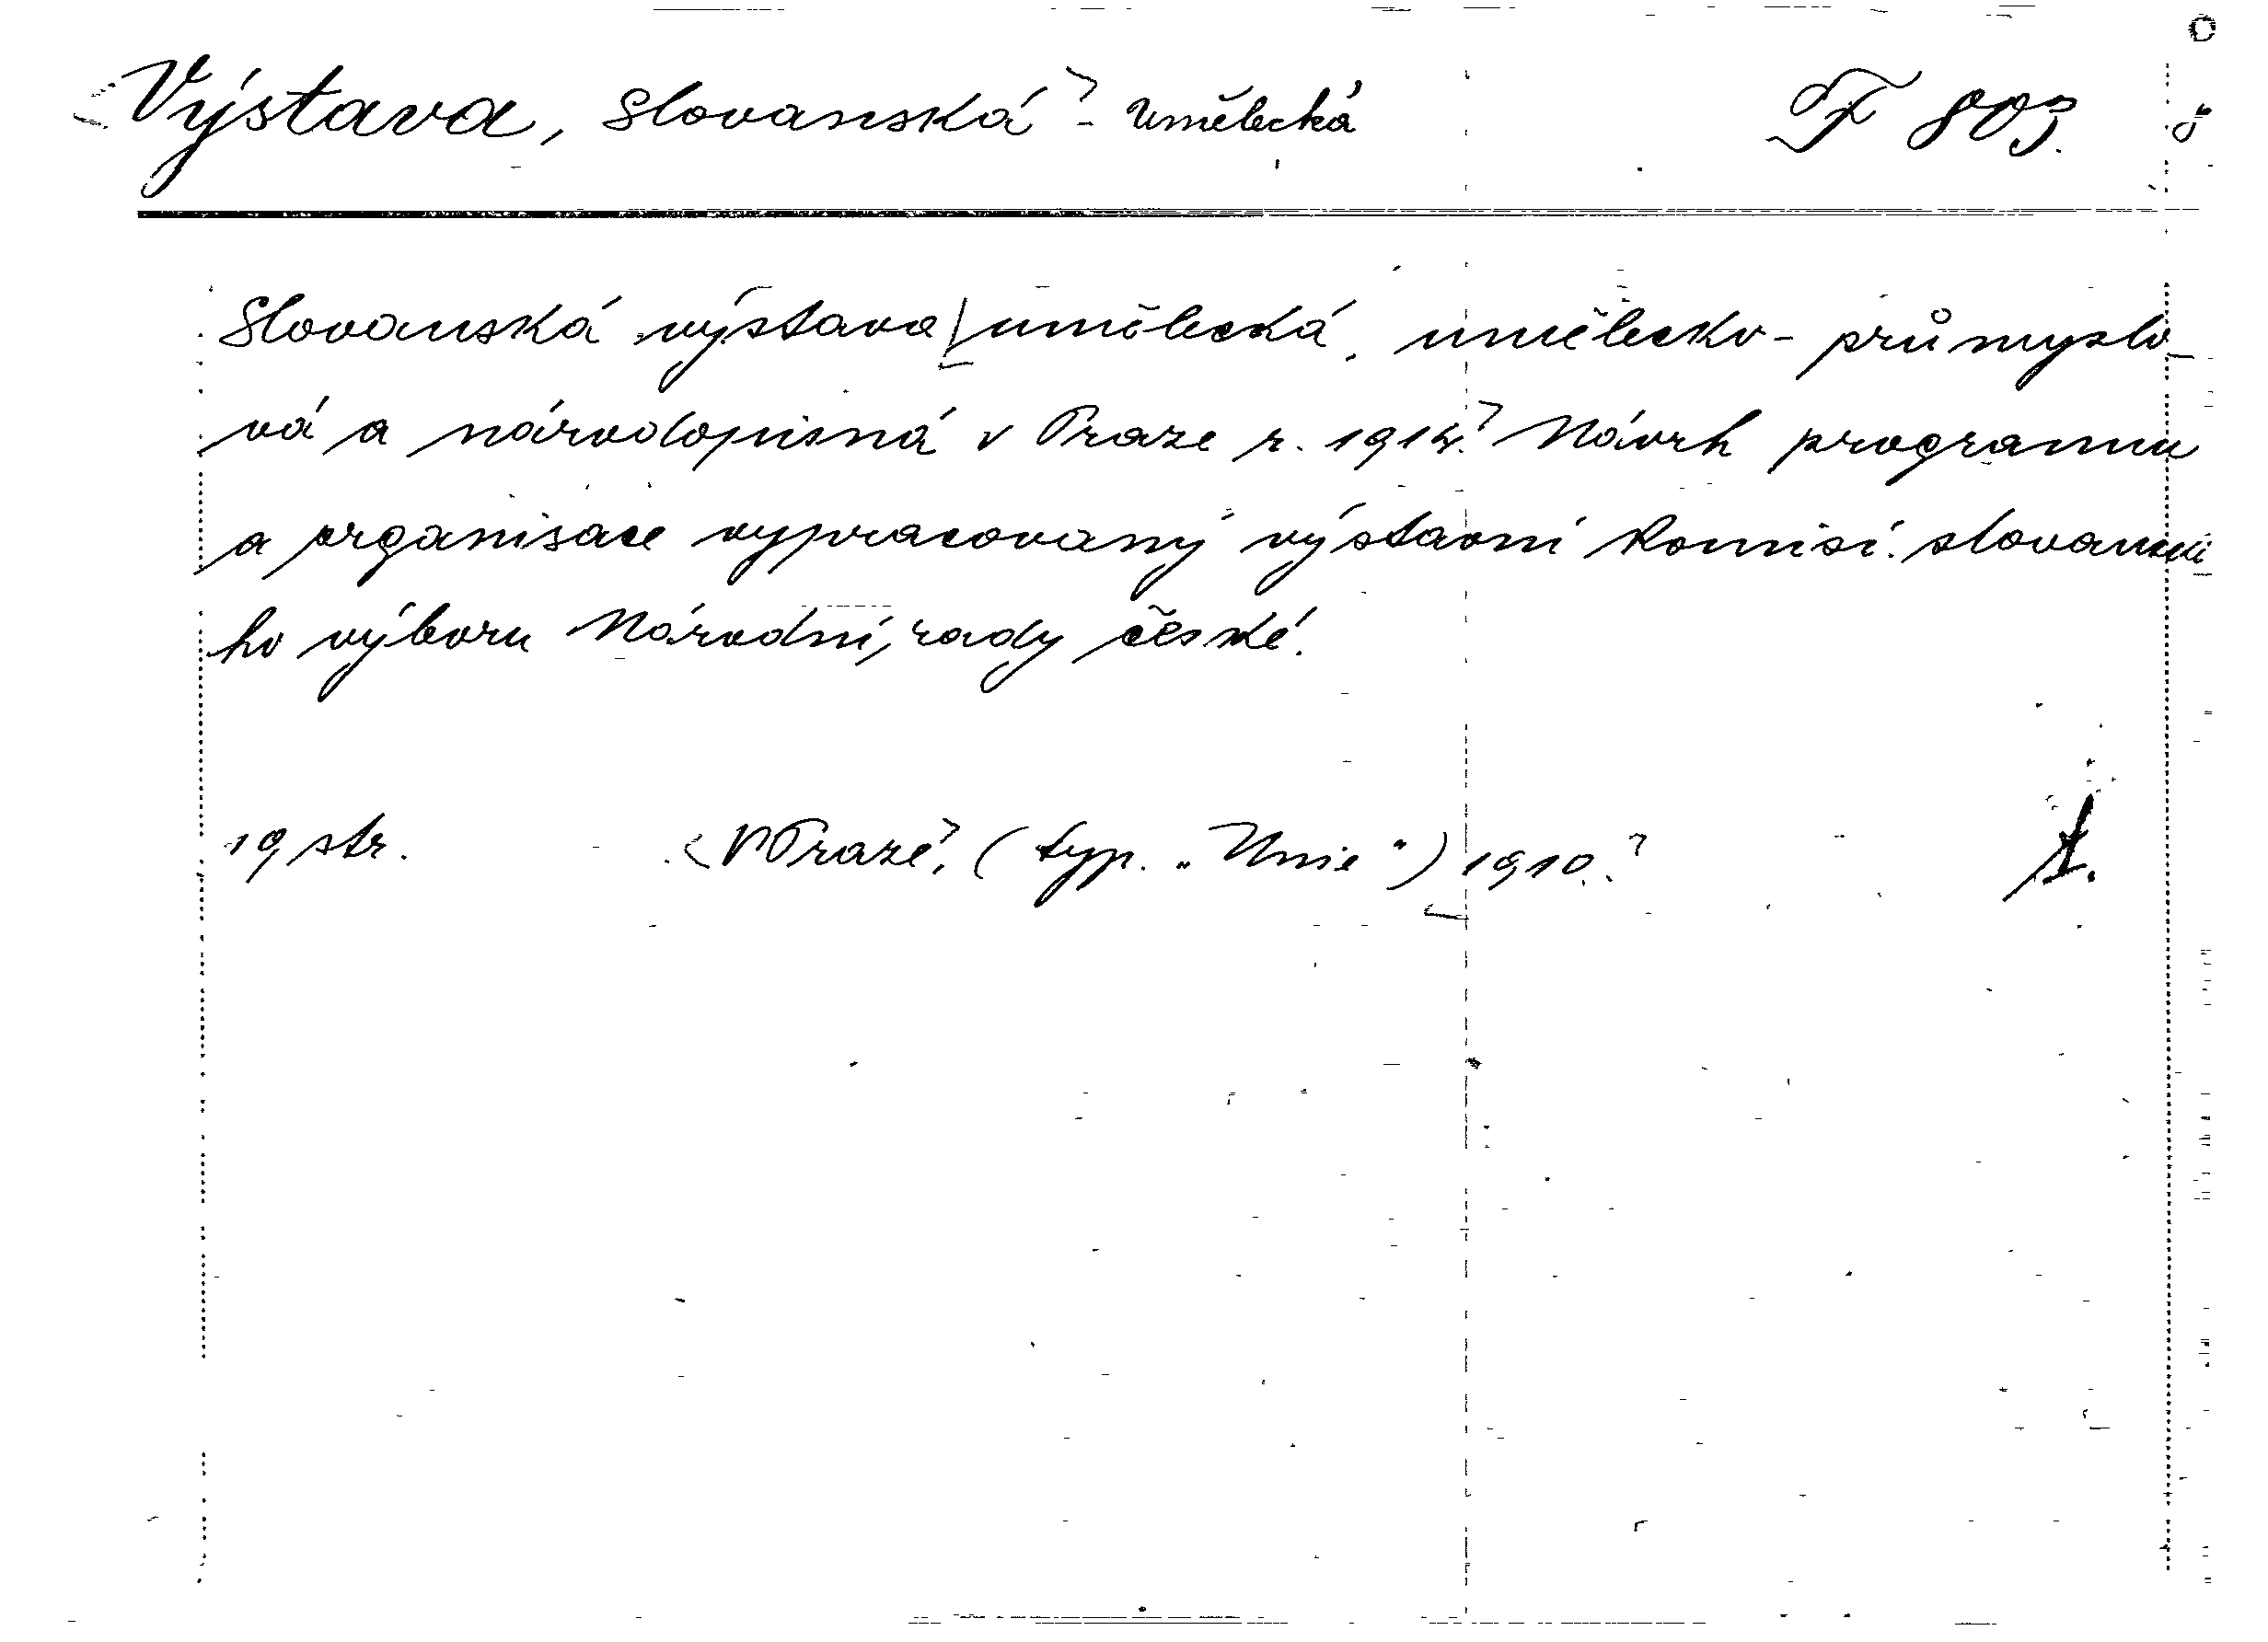 Výstava, Slovanská - umělecká F 803.
Slovanská výstava umělecká, umělecko-průmyslo-
vá a národopisná v Praze r. 1914. Návrh programu
a organisace vypracovaný výstavní komisí slovanské
ho výboru Národní rady české.
19 str. V Praze, (typ. „Unie") 1910.